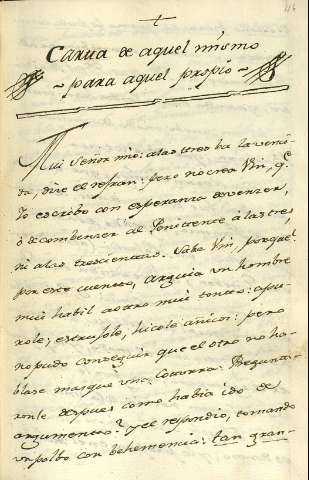 Carta de aquel mismo
para aquel propio
Mui Señor mio: a las tres ba la venci-
da, dice el refran: pero no crea Vm, q.e
Yo escribo con esperanza de venzer,
ò de combenzer al Penitente à las tres
ni a las trescientas. Sabe Vm, porquè?
por este cuento, Arguia un hombre
mui habil a otro mui tonto: apu-
role, estrujolo, hizole añicos: pero
no pudo conseguir que el otro no ha-
blase mas que una Cotorra. Pregunta-
ronle despues como habia ido de
argumento? y el respondio, tomando
un polbo con behemencia: tan gran-